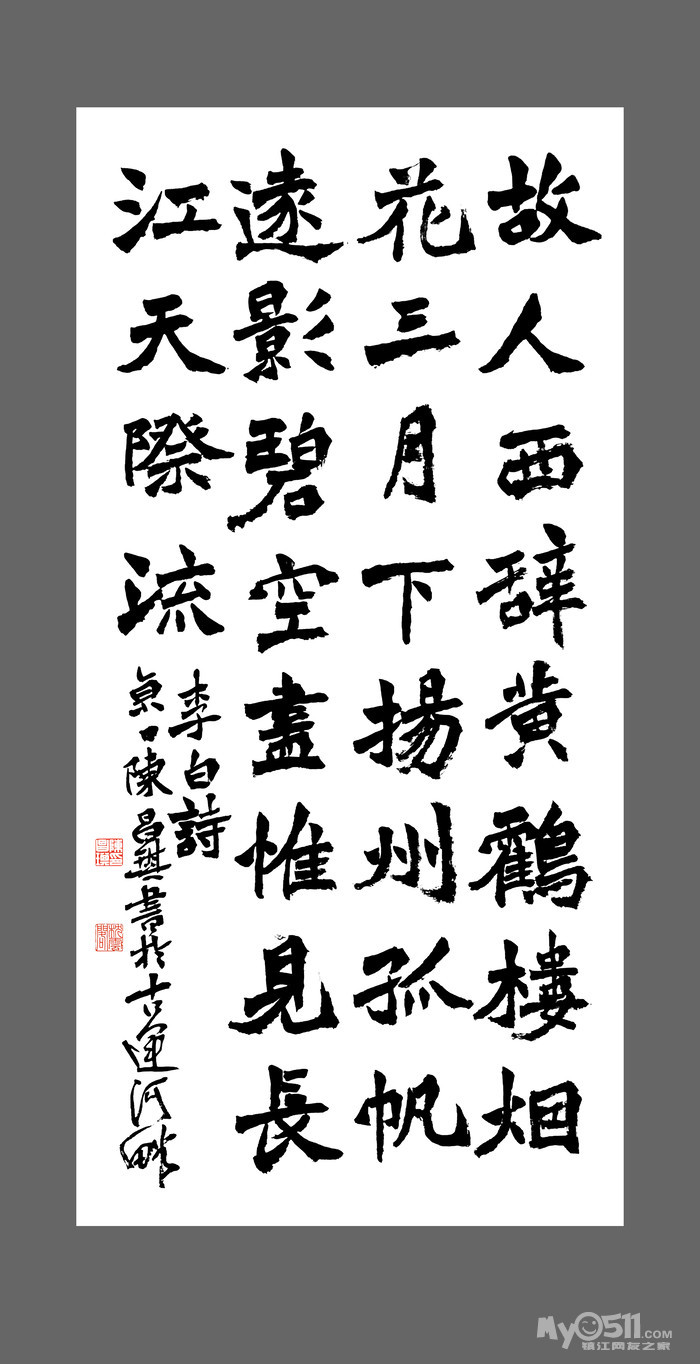 故人西辞黄鶴樓烟
花三月下揚州孤帆
遠影碧空盡惟見長
江天際流
李白詩
京口陳昌典書於古運河畔
My0511.COM
镇江网友之家